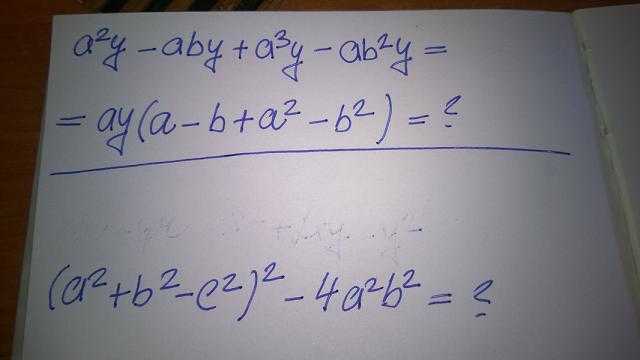 a²y - aby + a³y - ab²y =
= ay(a - b + a² - b²) = ?
(a² + b² - c²)² - 4a²b² = ?